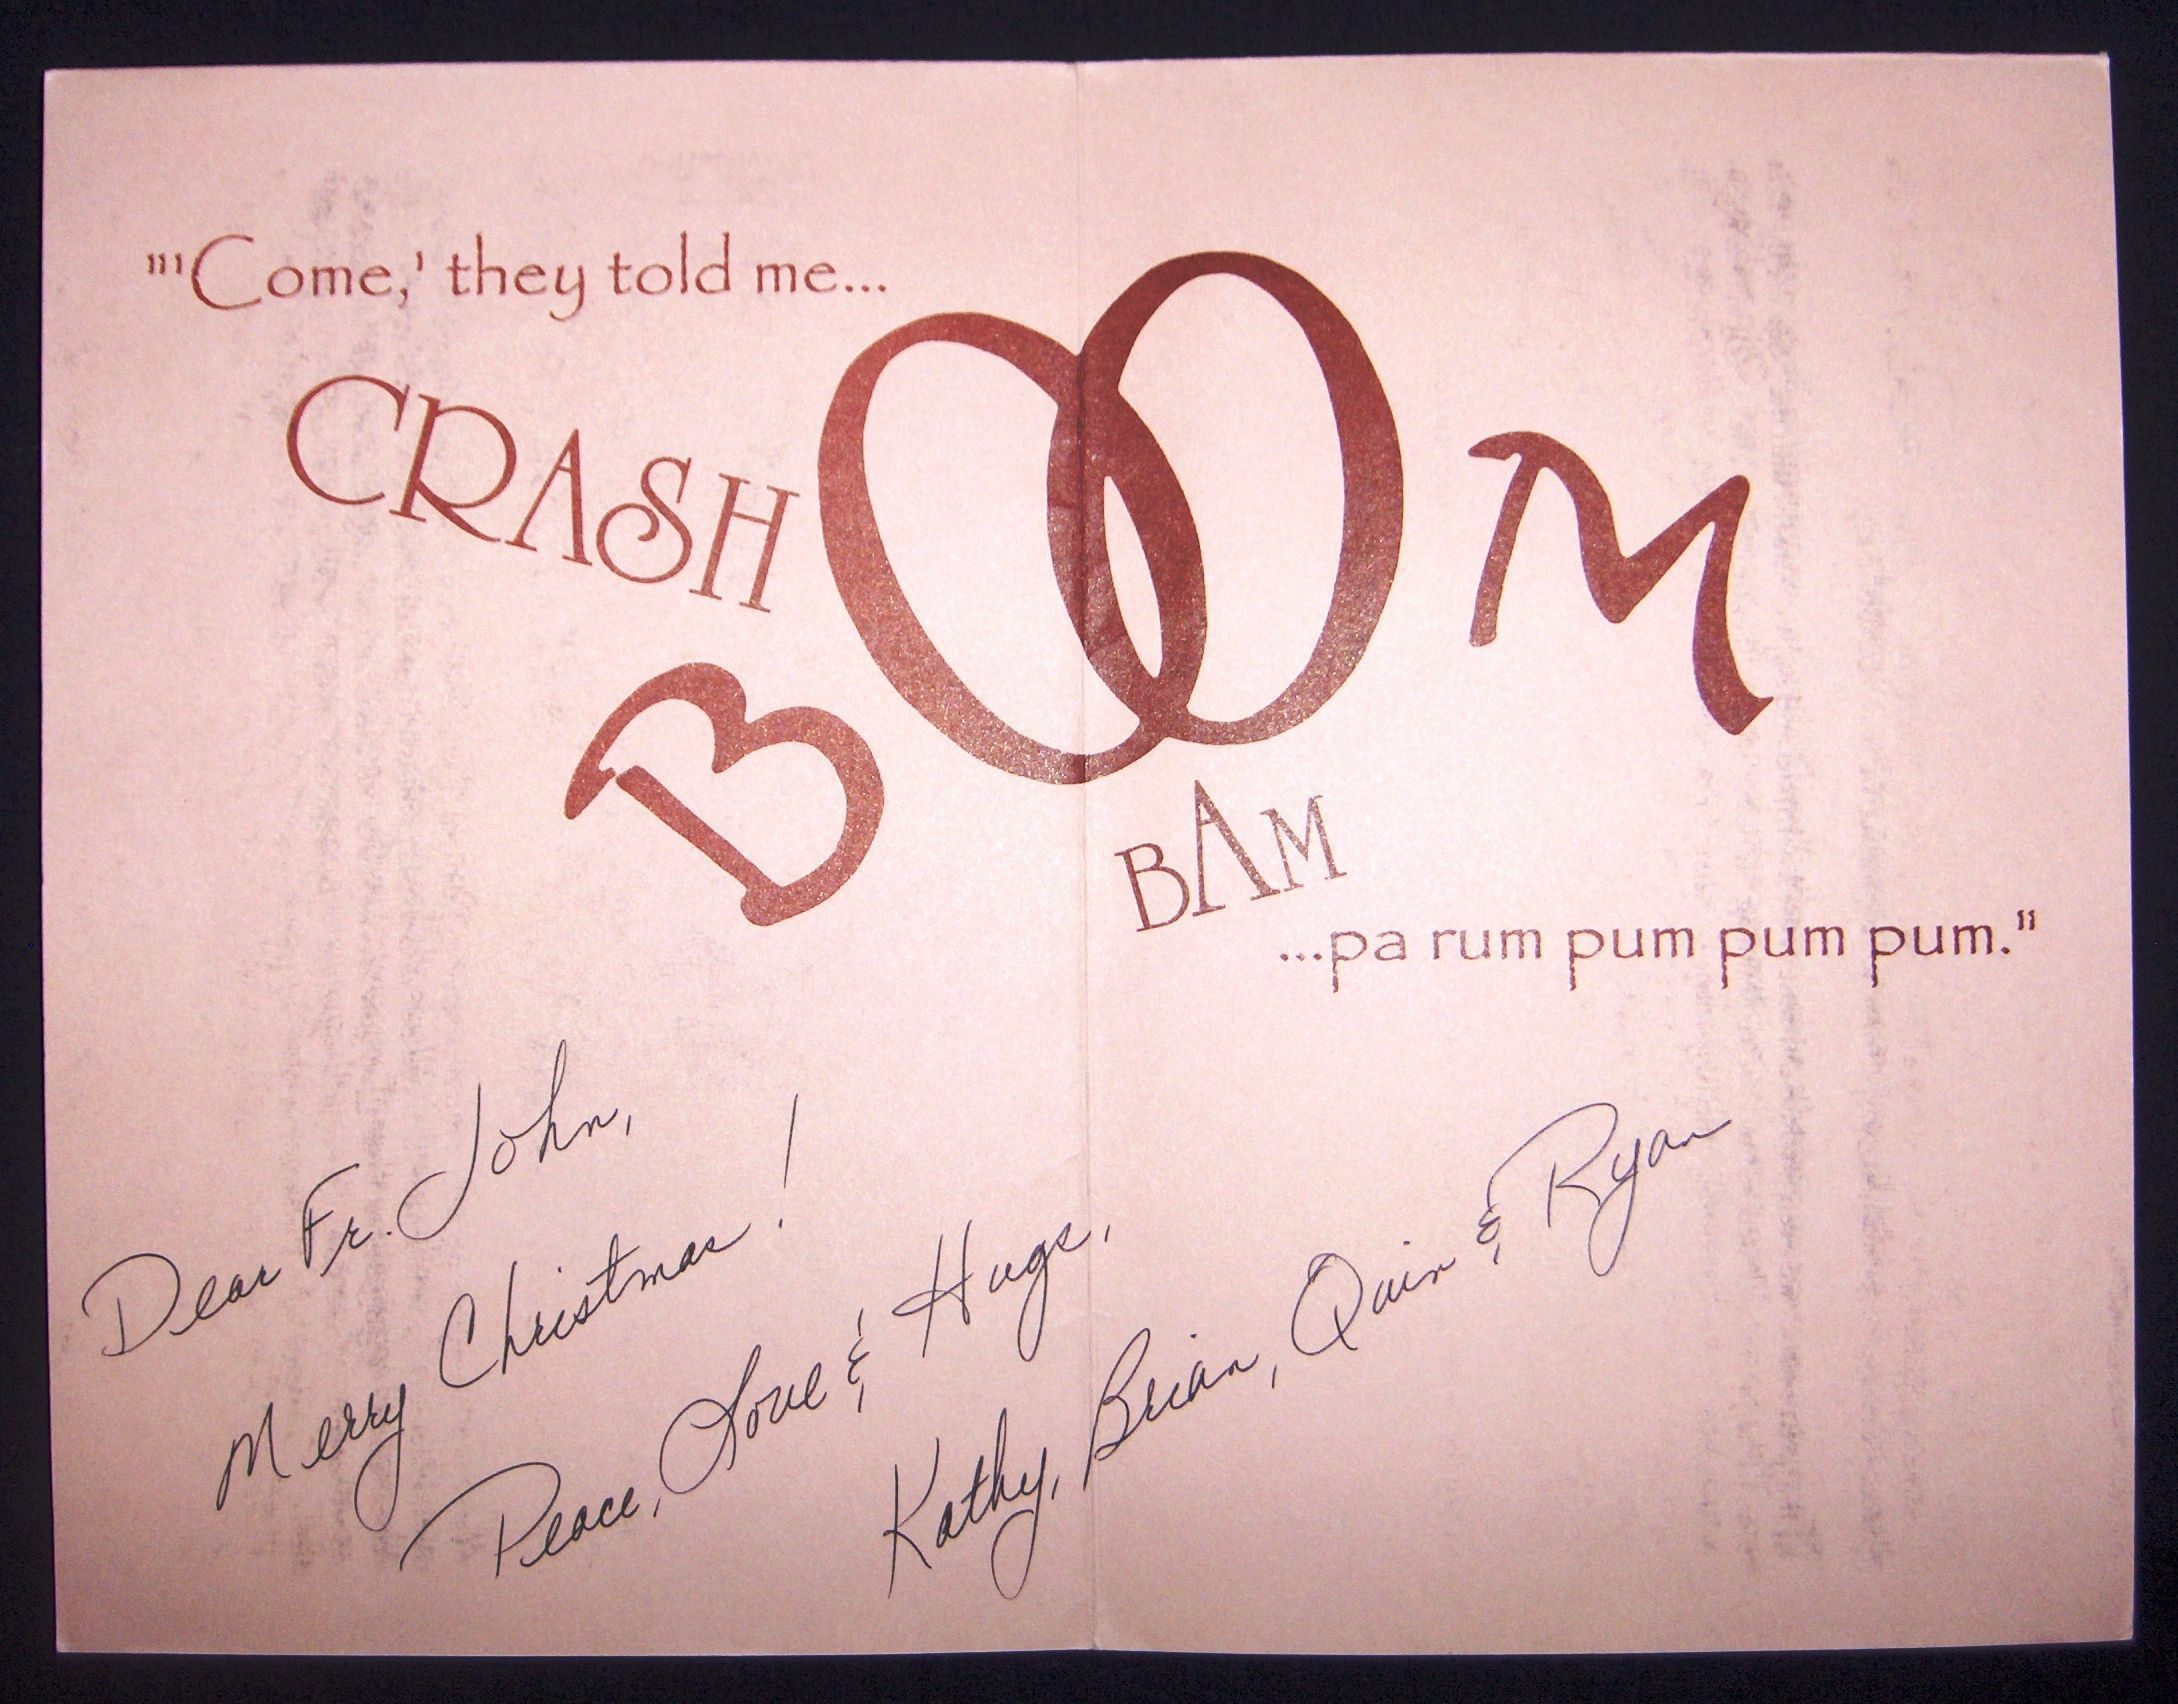 "'Come,' they told me...
CRASH
BOOM
BAM
...pa rum pum pum pum."
Dear Fr. John,
Merry Christmas!
Peace, Love & Hugs,
Kathy, Brian, Quin & Ryan